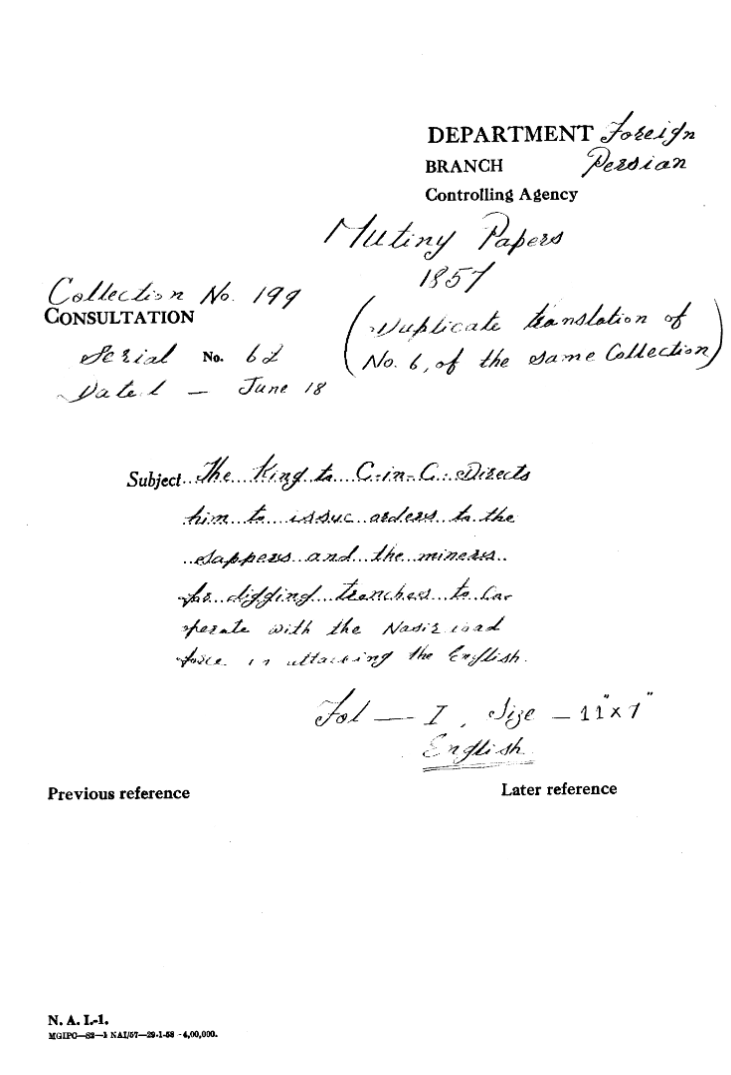 DEPARTMENT Foreign
BRANCH Persian
Controlling Agency
Mutiny Papers
1857
Collection No. 199
CONSULTATION
(Duplicate translation of
No. 6, of the same Collection)
Serial No. 62
Dated — June 18
Subject...The King to C-in-C: Directs
him to issue orders to the
sappers and the miners
for digging trenches to Co-
operate with the Nasirabad
force in attacking the English.
Fol — I, Size — 11"x7"
English
Previous reference
Later reference
N. A. I.-1.
MGIPC—S2—1 NAI/57—29-1-58 -4,00,000.